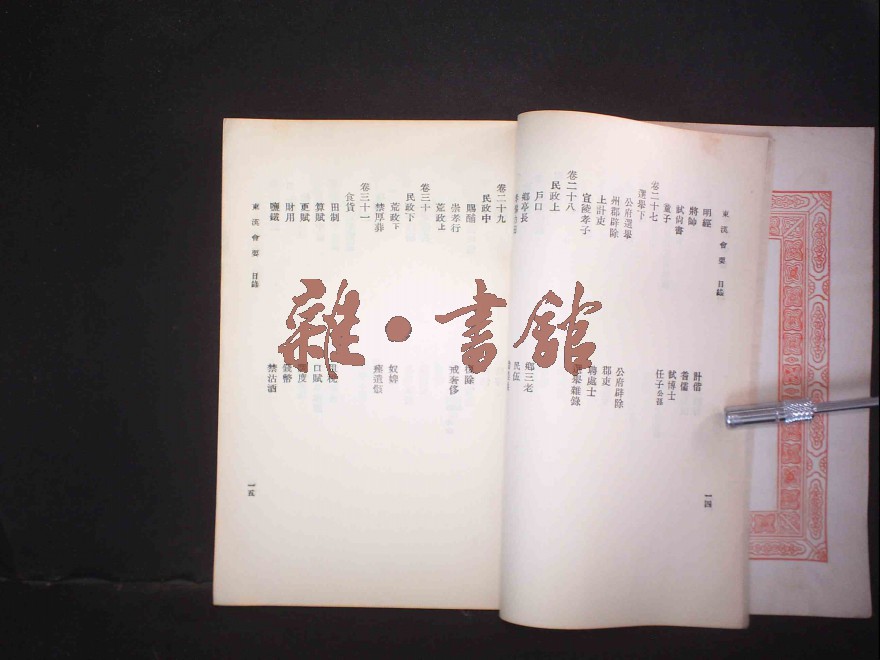 東漢會要 目錄
明經 計偕
將帥 耆儒
試尚書 試博士
童子 任子公孫
卷二十七
選舉下
公府選舉 公府辟除
州郡辟除 郡吏
上計吏 聘處士
宣陵孝子 選舉雜錄
卷二十八
民政上
戶口 鄉三老
鄉亭長 民伍
卷二十九
民政中
賜酺 復除
崇孝行 戒奢侈
荒政上
卷三十
民政下
荒政下 奴婢
禁厚葬
卷三十一
食貨
田制
算賦 口賦
更賦
財用 錢幣
鹽鐵 禁沽酒
東漢會要 目錄
一四
一五
雜·書館